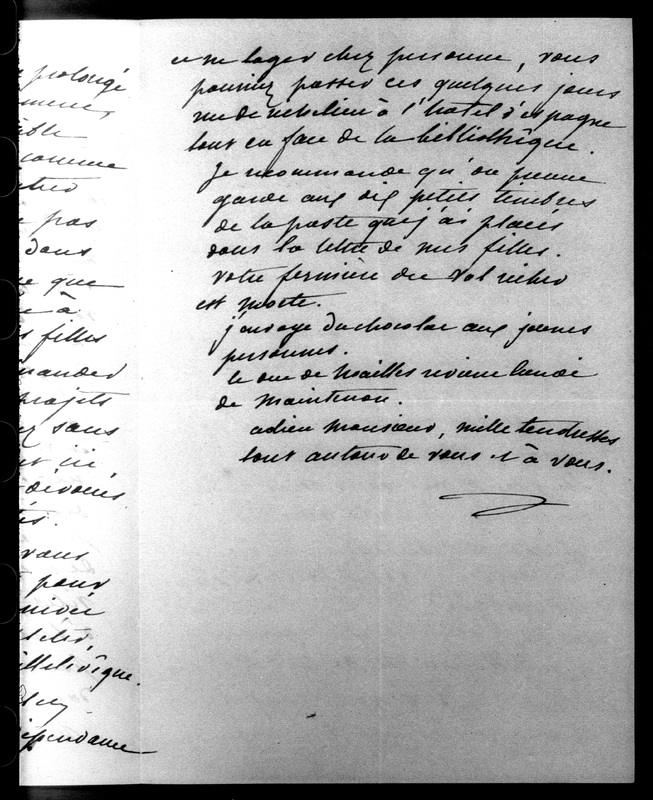 prolongé
comme
pas
dans
que
à
filles
projets
sans
ici
dévoués
vous
pour
bibliothèque.
indépendance
et ne loger chez personne, vous
pourriez passer ces quelques jours
rue de richelieu à l'hôtel d'espagne
tout en face de la bibliothèque.
Je recommande qu'on prenne
garde aux dix petits timbres
de la poste que j'ai placés
dans la lettre de mes filles.
votre fermière du Val richer
est morte.
j'envoye du chocolat aux jeunes
personnes.
le duc de Noailles revient lundi
de Maintenon.
adieu monsieur, mille tendresses
tout autour de vous et à vous.